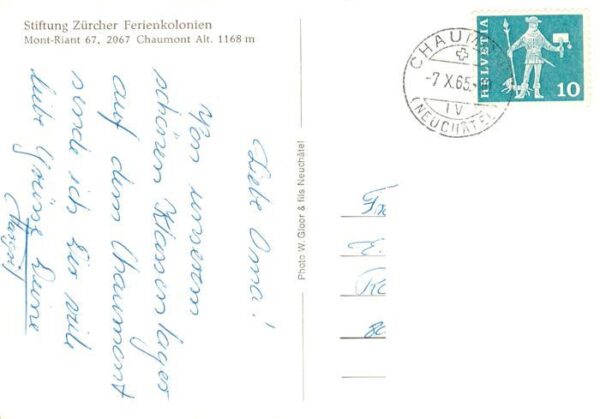 Stiftung Zürcher Ferienkolonien
Mont-Riant 67, 2067 Chaumont Alt. 1168 m
Liebe Oma!
Von unserem
schönen Klassenlager
auf dem Chaumont
sende ich Dir viele
liebe Grüsse Deine
Photo W. Gloor & fils Neuchâtel
CHAUMONT
-7.X.65.-
(NEUCHÂTEL)
HELVETIA
10